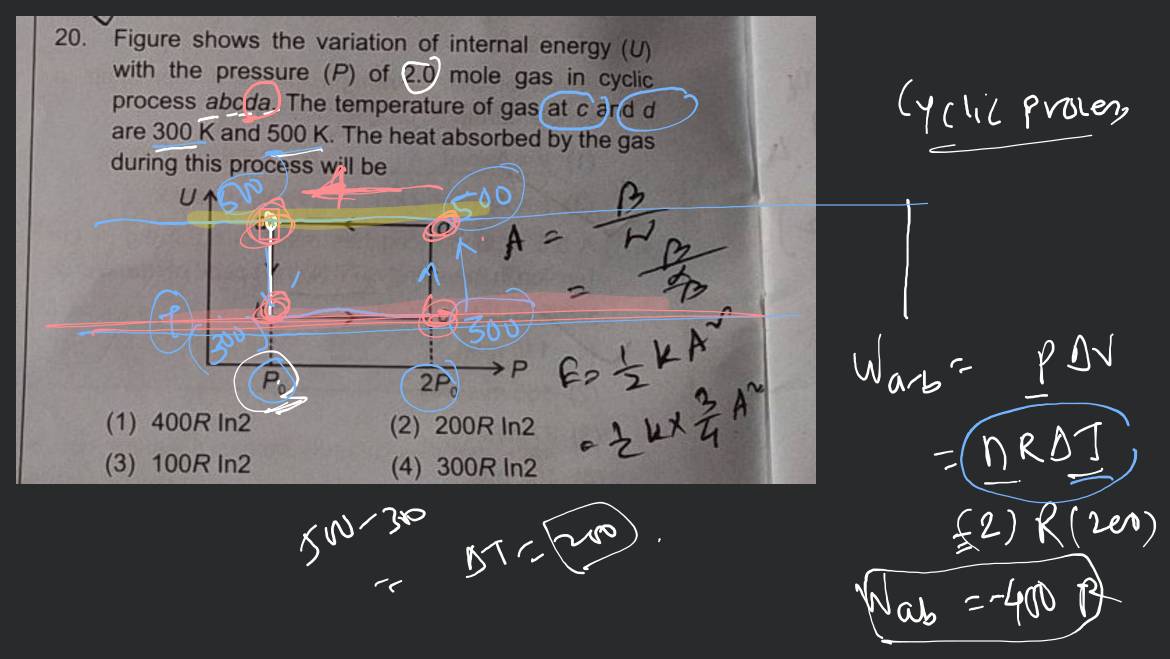 20. Figure shows the variation of internal energy (U)
with the pressure (P) of 2.0 mole gas in cyclic
process abcda. The temperature of gas at c and d
are 300 K and 500 K. The heat absorbed by the gas
during this process will be
U
500
500
300
300
P₀
2P₀
P
(1) 400R ln2
(2) 200R ln2
(3) 100R ln2
(4) 300R ln2
A =
=
E = 1/2 k A²
= 1/2 k × 3/4 A²
Cyclic process
W a→b = P ΔV
= n R ΔT
(2) R (200)
W ab = -400 R
500 - 300
= ΔT = 200